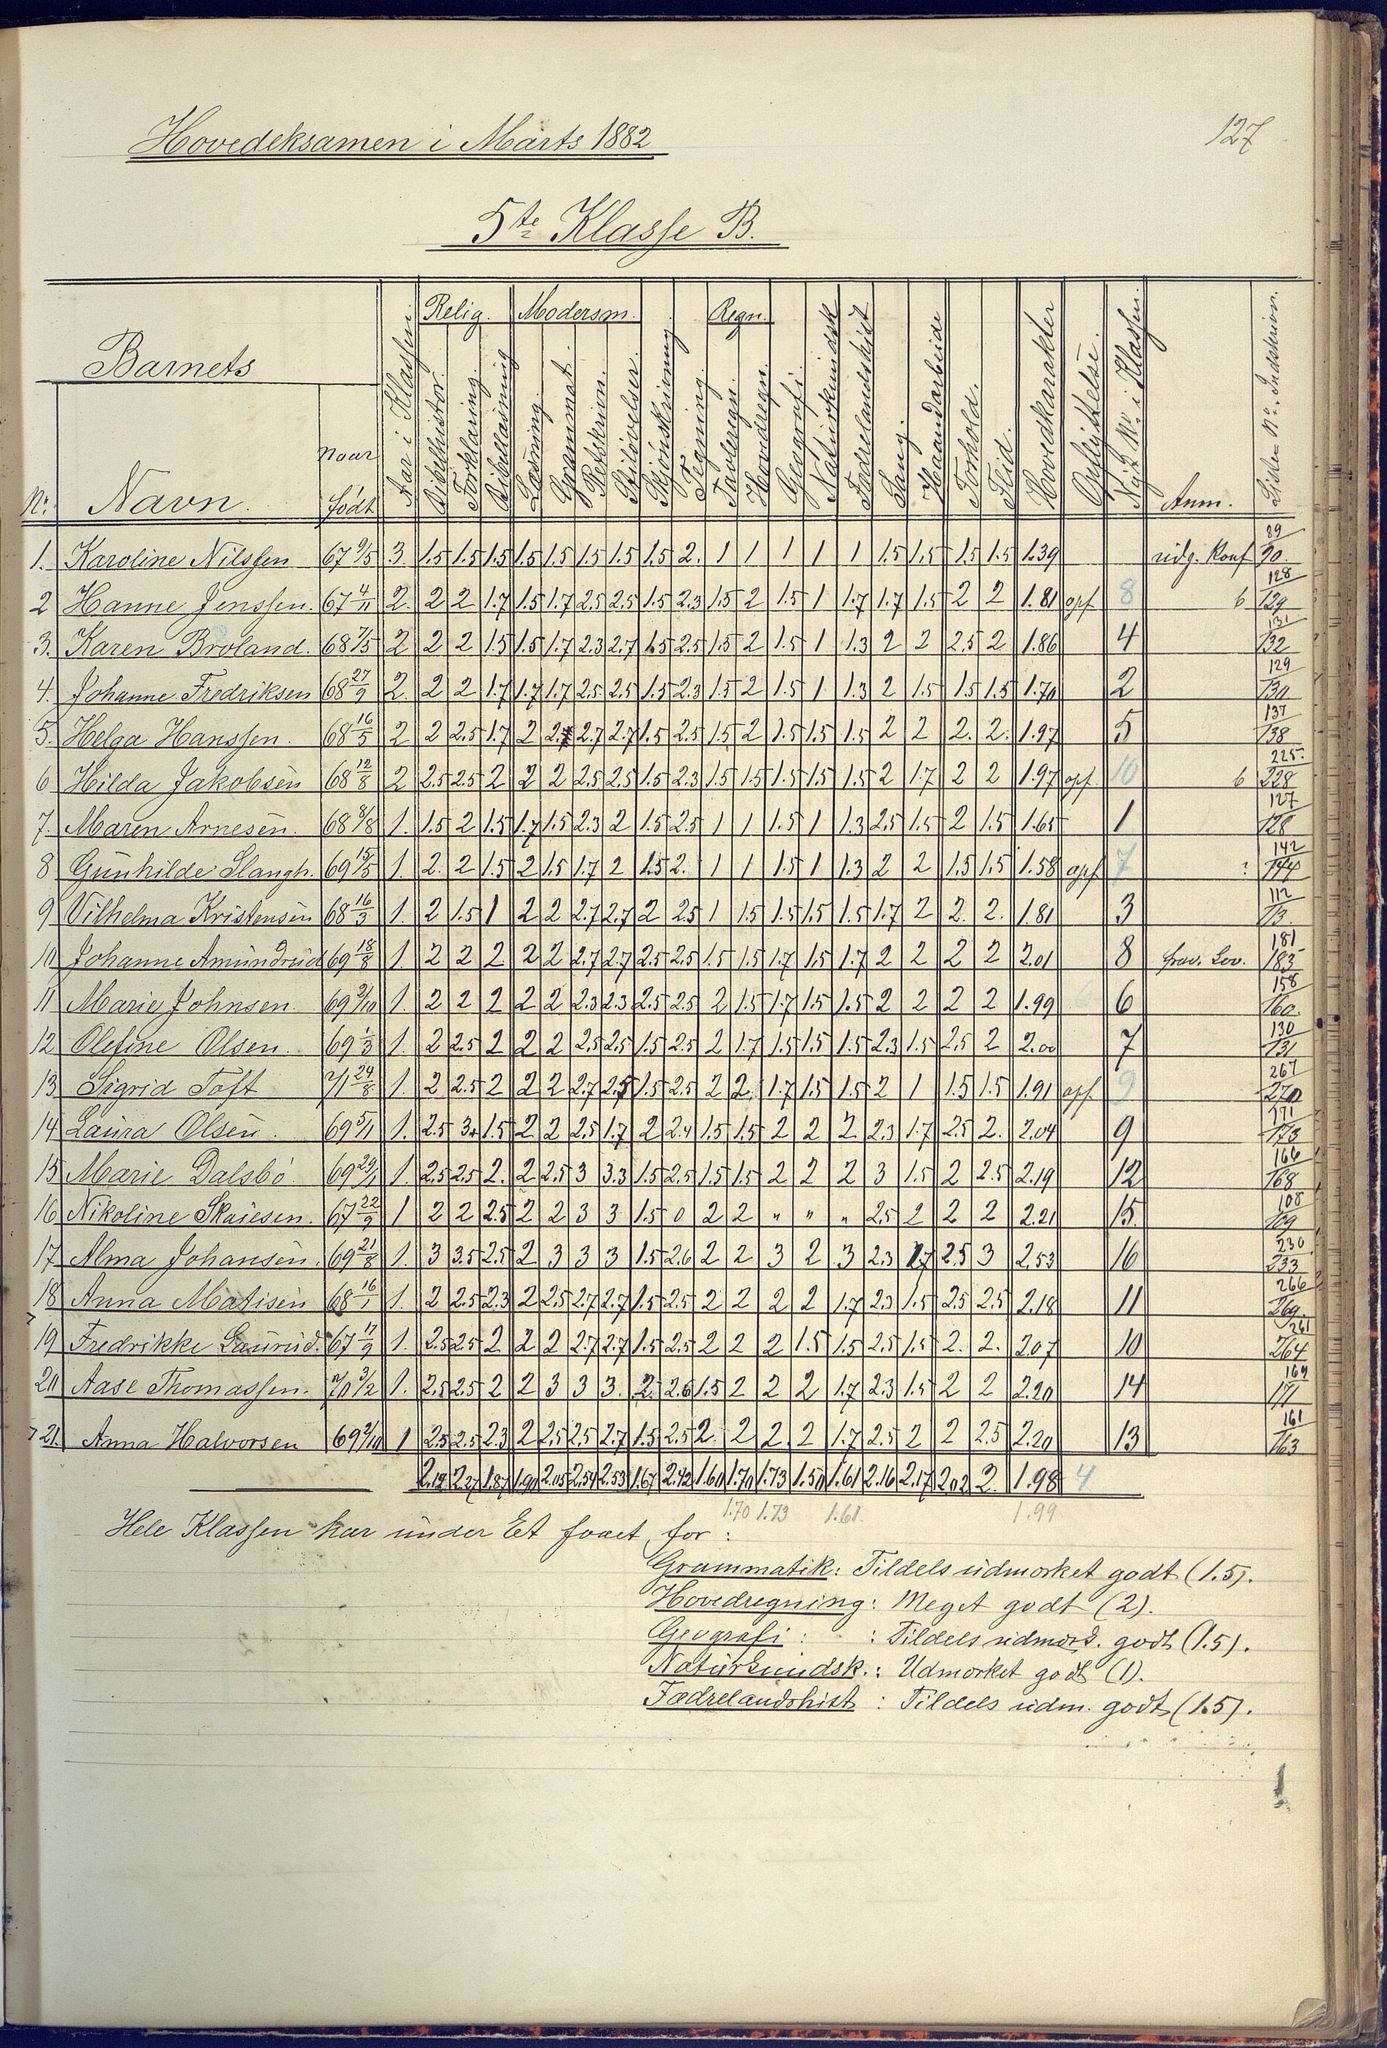 127
Hovedeksamen i Marts 1882
5te Klasse B.
Relig. Modersm. Regn.
Barnets
Nr. Navn. Naar født Aar i Klassen Bibelhistor. Forklaring. Bibellæsning Læsning. Grammat. Retskrivn. Stiløvelser Skjönskrivning. Tegning. Tavleregn. Hovedregn. Geografi. Naturkundsk Fædrelandshist Sang. Haandarbeide Forhold. Flid. Hovedkarakter Opflyttelse. Nyt Nr. i Klassen Anm. Liste No. Indskrivn.
1. Karoline Nilssen 67 9/5 3. 1.5 1.5 1.5 1.5 1.5 1.5 1.5 1.5 2. 1 1 1 1 1 1.5 1.5 1.5 1.5 1.39 udg. Konf 89/90.
2 Hanne Jenssen. 67 4/11 2. 2 2 1.7 1.5 1.7 2.5 2.5 1.5 2.3 1.5 2 1.5 1 1.7 1.7 1.5 2 2 1.81 opf. 8 6 128/129
3. Karen Broland. 68 7/5 2 2 2 1.5 1.5 1.7 2.3 2.7 1.5 2.5 1.5 2 1.5 1 1.3 2 2 2.5 2 1.86 4 131/132
4. Johanne Fredriksen 68 27/9 2. 2 2 1.7 1.7 1.7 2.5 2.5 1.5 2.3 1.5 2 1.5 1 1.3 2 1.5 1.5 1.5 1.70 2 129/130
5. Helga Hanssen. 68 16/5 2 2 2.5 1.7 2 2. 2.7 2.7 1.5 2.5 1.5 2 1.5 1.5 1.5 2 2 2. 2. 1.97 5 137/138
6 Hilda Jakobsen 68 12/8 2 2.5 2.5 2 2 2 2.5 2.5 1.5 2.3 1.5 1.5 1.5 1.5 1.5 2 1.7 2 2 1.97 opf. 10 6 225./228
7. Maren Arnesen. 68 8/8 1. 1.5 2 1.5 1.7 1.5 2.3 2 1.5 2.5 1 1 1.5 1 1.3 2.5 1.5 2 1.5 1.65 1 127/128
8 Gunhilde Slangh. 69 15/5 1. 2. 2 1.5 2 1.5 1.7 2 1.5 2. 1 1 1.5 1 1.3 2 2 1.5 1.5 1.58 opf 7 142/144
9 Vilhelma Kristensen 68 16/3 1. 2 1.5 1 2 2 2.7 2.7 2 2.5 1 1.5 1.5 1.5 1.5 1.7 2 2. 2. 1.81 3 112/113.
10 Johanne Amundrud 69 18/8 1. 2 2 2 2 2 2.7 2.7 2.5 2.5 1.5 1.5 1.7 1.5 1.7 2 2 2 2 2.01 8 frav. Lov. 181/183
11 Marie Johnsen. 69 2/10 1. 2 2 2 2 2 2.3 2.3 2.5 2.5 2 1.5 1.7 1.5 1.5 2 2 2 2 1.99 6 158/160.
12 Olefine Olsen. 69 1/3 1. 2 2.5 2 2 2 2.5 2.5 1.5 2.5 2 1.7 1.5 1.5 1.5 2.3 1.5 2.5 2 2.00 7 130/131
13 Sigrid Toft 71 24/8 1. 2 2.5 2 2 2 2.7 2.5 1.5 2.5 2 2. 1.7 1.5 1.5 2 1 1.5 1.5 1.91 opf. 9 267/270
14 Laura Olsen. 69 5/1 1. 2.5 3+ 1.5 2 2 2.5 1.7 2 2.4 1.5 1.5 2 2 2. 2.3 1.7 2.5 2. 2.04 9 171/173
15 Marie Dalsbö 69 29/1 1. 2.5 2.5 2. 2 2.5 3 3.3 1.5 2.5 1.5 1.5 2 2 2 3 1.5 2 2.5 2.19 12 166/168
16 Nikoline Skaiesen. 67 22/9 1 2 2 2.5 2 2 3 3 1.5 0 2 2 " " " 2.5 2 2 2 2.21 15. 108/109
17 Alma Johansen. 69 21/8 1. 3 3.5 2.5 2 3 3 3 1.5 2.6 2 2 3 2 3 2.3 1.7 2.5 3 2.53 16 230/233
18 Anna Matisen 68 16/1 1. 2 2.5 2.3 2 2.5 2.7 2.7 1.5 2.5 2 2 2 2 1.7 2.3 1.5 2.5 2.5 2.18 11 266/269.
19 Fredrikke Laurud. 67 17/9 1. 2.5 2.5 2 2 2 2.7 2.7 1.5 2.5 2 2 2 1.5 1.5 2.5 1.5 2. 2. 2.07 10 261/264
20 Aase Thomassen. 70 3/2 1. 2.5 2.5 2 2 3 3 3. 2. 2.6 1.5 2 2 2 1.7 2.3 1.5 2 2 2.20 14 169/171
21. Anna Halvorsen 69 2/10 1 2.5 2.5 2.3 2 2.5 2.5 2.7 1.5 2.5 2. 2 2. 2 1.7 2.5 2 2 2.5 2.20 13 161/163
2.12 2.27 1.87 1.90 2.05 2.54 2.53 1.67 2.42 1.60 1.70 1.73 1.50 1.61 2.16 2.17 2.02 2. 1.98 4
1.70 1.73 1.61 1.99
Hele Klassen har under Et faaet for:
Grammatik: Tildels udmörket godt (1.5).
Hovedregning: Meget godt (2).
Geografi: : Tildels udmörk. godt (1.5).
Naturkundsk.: Udmörket godt (1).
Fædrelandshist: Tildels udm. godt (1.5).